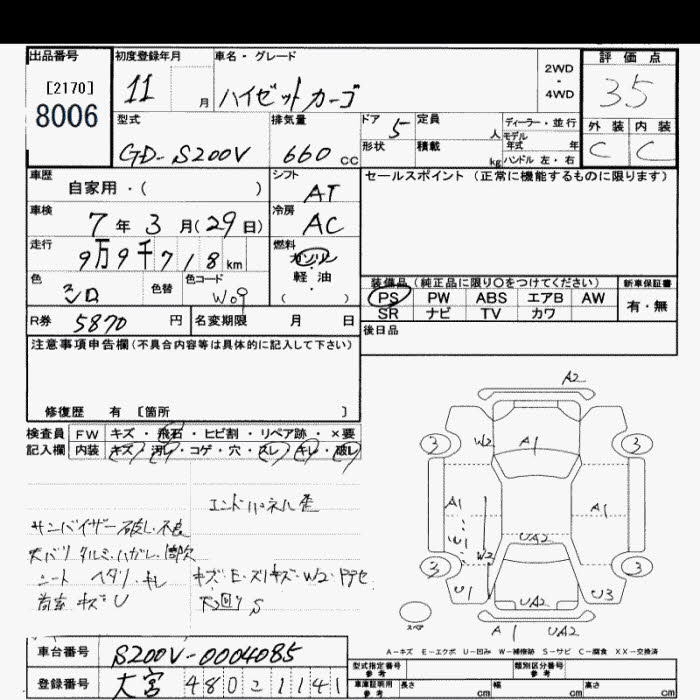 出品番号
[2170]
8006
初度登録年月
11 月
車名・グレード
ハイゼットカーゴ
2WD
・
4WD
評価点
35
外装 内装
C C
型式
GD-S200V
排気量
660 cc
ドア 5
形状
定員 人
積載 kg
ディーラー・並行
モデル年式 年
ハンドル 左・右
車歴
自家用・( )
シフト
AT
車検
7年3月(29日)
冷房
AC
走行
9万9千718km
燃料
ガソリン
・
軽油
・
( )
色
色替
色コード
W09
セールスポイント(正常に機能するものに限ります)
装備品(純正品に限り○をつけてください)
PS PW ABS エアB AW
SR ナビ TV カワ
新車保証書
有・無
R券 5870 円
名変期限 月 日
後日品
注意事項申告欄(不具合内容等は具体的に記入して下さい)
修復歴 有 [箇所 ]
検査員記入欄
FW キズ・飛石・ヒビ割・リペア跡・×要
内装 キズ・汚レ・コゲ・穴・スレ・キレ・破レ
エンドパネル歪
サンバイザー破レ・不良
天バリ タルミ・ハガレ・
シート ヘタリ・キレ
キズ・E・スリキズ・W2・
キズU
S
A2
3 W2 A1 3
A1 A1
U1 UA2
W2
3 3
U1 UA2 U3
スペア
A1 UA2
A-キズ E-エクボ U-凹み W-補修跡 S-サビ C-腐食 XX-交換済
車台番号
S200V-0004085
登録番号
大宮 480 2 1141
型式指定番号 参考
類別区分番号 参考
車庫証明用 参考
長さ cm
幅 cm
高さ cm